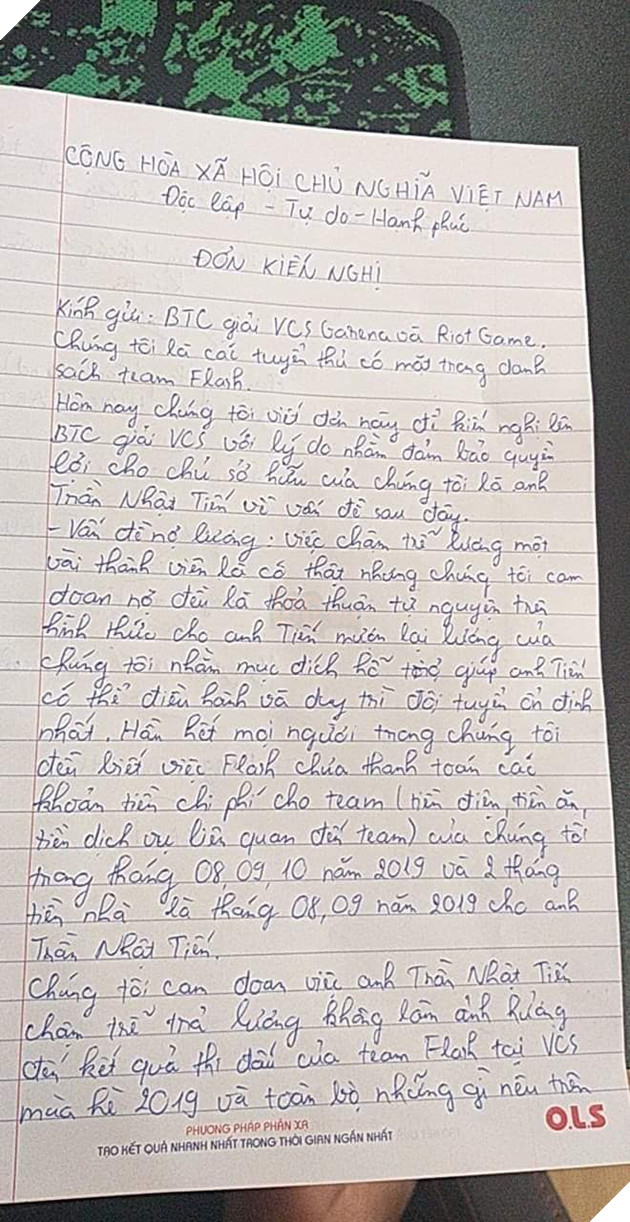 CỘNG HÒA XÃ HỘI CHỦ NGHĨA VIỆT NAM
Độc lập - Tự do - Hạnh phúc
ĐƠN KIẾN NGHỊ
Kính gửi: BTC giải VCS Garena và Riot Game.
Chúng tôi là các tuyển thủ có mặt trong danh
sách team Flash.
Hôm nay chúng tôi viết đơn này để kiến nghị lên
BTC giải VCS với lý do nhằm đảm bảo quyền
lợi cho chủ sở hữu của chúng tôi là anh
Trần Nhật Tiến về vấn đề sau đây.
- Vấn đề nợ lương: việc chậm trễ lương một
vài thành viên là có thật nhưng chúng tôi cam
đoan nợ đều là thoả thuận tự nguyện trên
hình thức cho anh Tiến mượn lại lương của
chúng tôi nhằm mục đích hỗ trợ giúp anh Tiến
có thể điều hành và duy trì đội tuyển ổn định
nhất. Hầu hết mọi người trong chúng tôi
đều biết việc Flash chưa thanh toán các
khoản tiền chi phí cho team (tiền điện, tiền ăn,
tiền dịch vụ liên quan đến team) của chúng tôi
trong tháng 08, 09, 10 năm 2019 và 2 tháng
tiền nhà là tháng 08, 09 năm 2019 cho anh
Trần Nhật Tiến.
Chúng tôi cam đoan việc anh Trần Nhật Tiến
chậm trễ trả lương không làm ảnh hưởng
đến kết quả thi đấu của team Flash tại VCS
mùa hè 2019 và toàn bộ những gì nêu trên
PHƯƠNG PHÁP PHẢN XẠ
TẠO KẾT QUẢ NHANH NHẤT TRONG THỜI GIAN NGẮN NHẤT
O.L.S